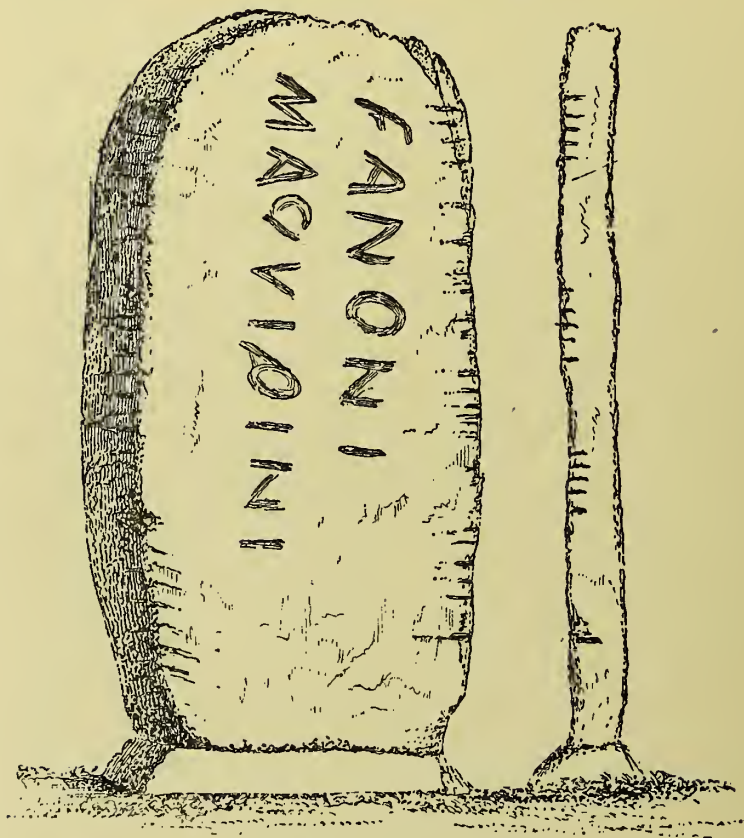 FANONI
MAQVIRINI